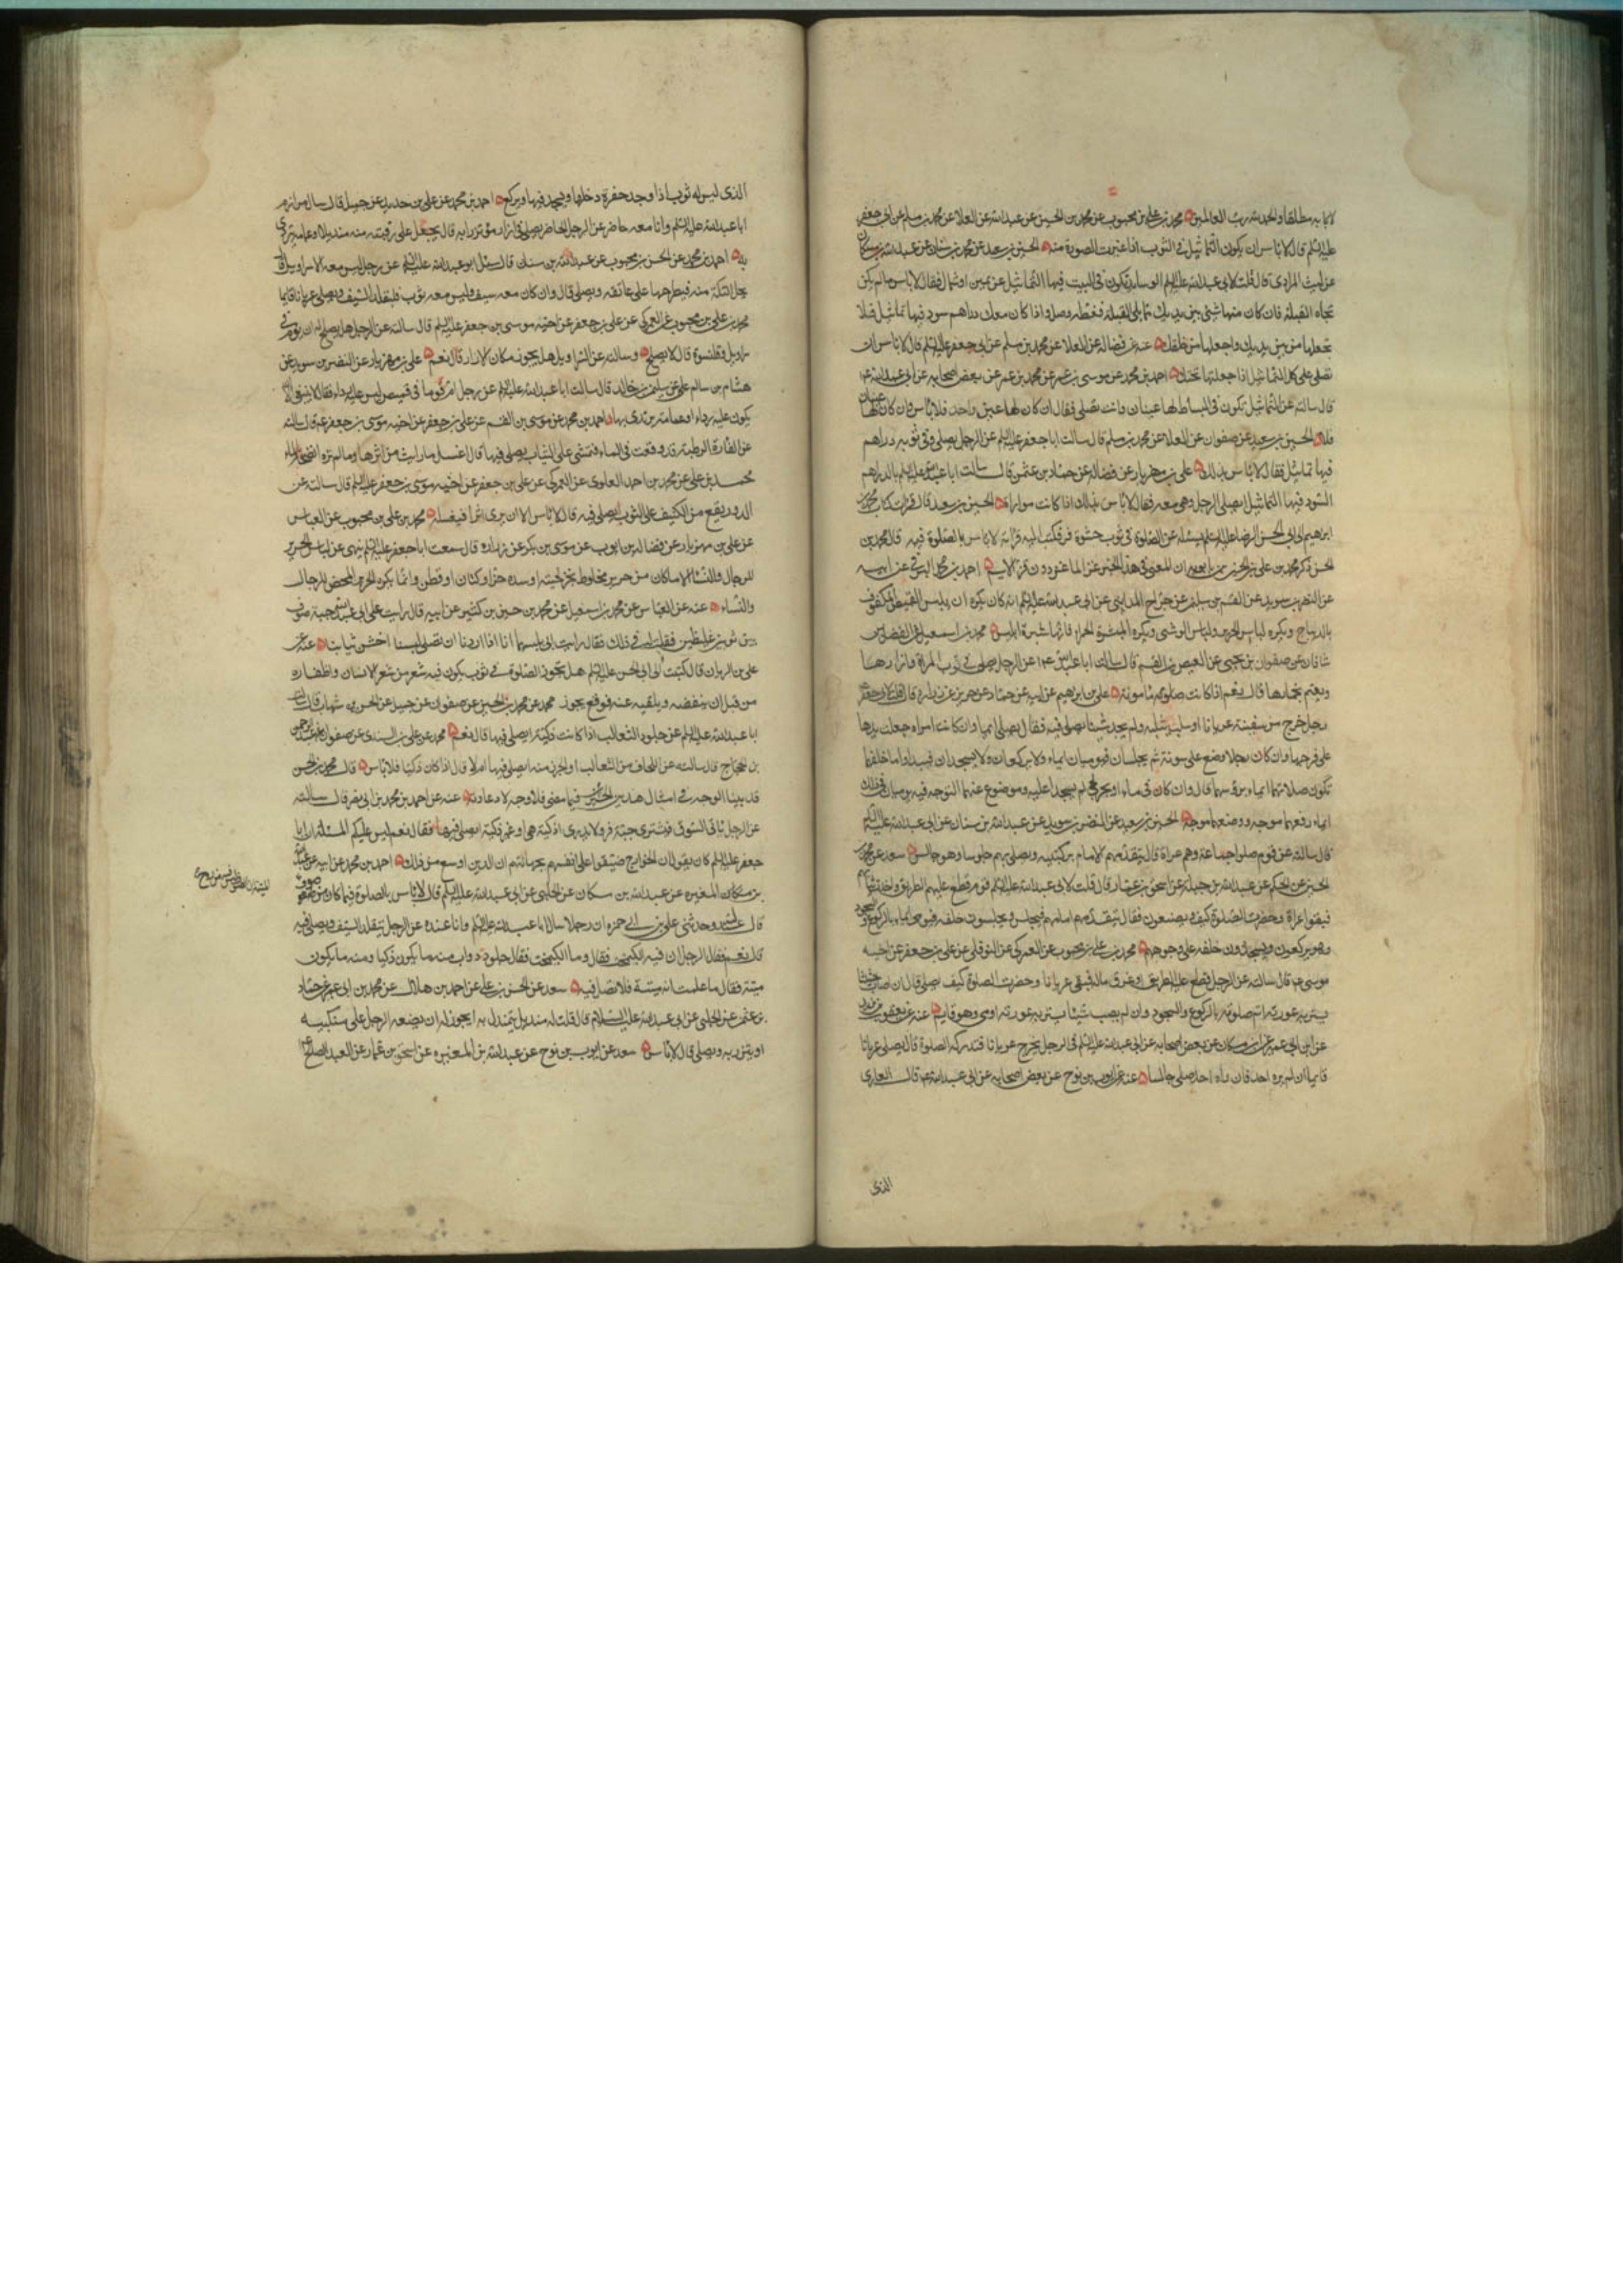 لاباس مطلقا والحمد لله رب العالمين محمد بن علي بن محبوب عن محمد بن الحسين عن عبد الله عن العلا عن محمد بن مسلم عن ابي جعفر
عليه السلم قال لا باس ان يكون التماثيل في الثوب اذا غيرت الصورة منه الحسين بن سعيد عن محمد بن سنان عن عبد الله بن مسكان
عن ليث المرادي قال قلت لابي عبد الله عليه السلم الوسايد تكون في البيت فيها التماثيل عن يمين او شمال فقال لا باس ما لم يكن
تجاه القبلة فان كان منها شئ بين يديك مما يلي القبلة فغطه وصل واذا كان معك دراهم سود فيها تماثيل فلا
تجعلها من بين يديك واجعلها من خلفك عنه عن فضالة عن العلا عن محمد بن مسلم عن ابي جعفر عليه السلم قال لا باس ان
تصلي على كل التماثيل اذا جعلتها تحتك احمد بن محمد عن موسى بن عمر عن محمد بن عمر عن بعض اصحابه عن ابي عبد الله ع
قال سالته عن التماثيل تكون في البساط لها عينان وانت تصلي فقال ان كان لها عين واحدة فلا باس وان كان لها عينان
فلا الحسين بن سعيد عن صفوان عن العلا عن محمد بن مسلم قال سالت ابا جعفر عليه السلم عن الرجل يصلي وفي ثوبه دراهم
فيها تماثيل فقال لا باس بذلك علي بن مهزيار عن فضالة عن حماد بن عثمن قال سالت ابا عبد الله عليه السلم عن الدراهم
السود فيها التماثيل ايصلي الرجل وهي معه فقال لا باس بذلك اذا كانت مواراة الحسين بن سعيد قال قرات كتاب محمد بن
ابراهيم الى ابي الحسن الرضا عليه السلم يسئله عن الصلوة في ثوب حشوه قز فكتب اليه قراته لا باس بالصلوة فيه قال محمد بن
الحسن ذكر محمد بن علي بن الحسين بن بابويه ان المعنى في هذا الخبر قز الماعز دون قز الابريسم احمد بن محمد البرقي عن ابيه
عن النضر بن سويد عن القسم بن سليمن عن جراح المدايني عن ابي عبد الله عليه السلم انه كان يكره ان يلبس القميص المكفوف
بالديباج ويكره لباس الحرير ولباس الوشي ويكره الميثرة الحمراء فانها ميثرة ابليس محمد بن اسمعيل عن الفضل بن
شاذان عن صفوان بن يحيى عن العيص بن القسم قال سالت ابا عبد الله ع عن الرجل يصلي في ثوب المراة وازارها
ويعتم بخمارها قال نعم اذا كانت مامونة علي بن ابراهيم عن ابيه عن حماد عن حريز عن زرارة قال قلت لابي جعفر
رجل خرج من سفينة عريانا او سلب ثيابه ولم يجد شيئا يصلي فيه فقال يصلي ايماء وان كانت امراة جعلت يدها
على فرجها وان كان رجلا وضع على سوءته ثم يجلسان فيوميان ايماء ولا يركعان ولا يسجدان فيبدو ما خلفهما
تكون صلاتهما ايماء برؤسهما قال وان كان في ماء او بحر لجي لم يسجدا عليه وموضوع عنهما التوجه فيه يوميان في ذلك
ايماء رفعهما موجه ووضعهما موجه الحسين بن سعيد عن النضر بن سويد عن عبد الله بن سنان عن ابي عبد الله عليه السلم
قال سالته عن قوم صلوا جماعة وهم عراة قال يتقدمهم الامام بركبتيه ويصلي بهم جلوسا وهو جالس سعد عن محمد بن
الحسين عن الحكم عن عبد الله بن جبلة عن اسحق بن عمار قال قلت لابي عبد الله عليه السلم قوم قطع عليهم الطريق واخذت ثيابهم
فبقوا عراة وحضرت الصلوة كيف يصنعون فقال يتقدمهم امامهم فيجلس ويجلسون خلفه فيومي ايماء بالركوع والسجود
وهم يركعون ويسجدون خلفه على وجوههم محمد بن علي بن محبوب عن العمركي عن البوفكي عن علي بن جعفر عن اخيه
موسى ع قال سالته عن الرجل قطع عليه الطريق او غرق ماله فبقي عريانا وحضرت الصلوة كيف يصلي قال ان اصاب حشيشا
يستر به عورته اتم صلوته بالركوع والسجود وان لم يصب شيئا يستر به عورته اومى وهو قايم عنه عن يعقوب بن يزيد
عن ابن ابي عمير عن ابن مسكان عن بعض اصحابه عن ابي عبد الله عليه السلم في الرجل يخرج عريانا فتدركه الصلوة قال يصلي عريانا
قايما ان لم يره احد فان راه احد صلى جالسا عنه عن ايوب بن نوح عن بعض اصحابه عن ابي عبد الله ع قال العاري
الذي
الذي ليس له ثوب اذا وجد حفرة دخلها ويسجد فيها ويركع احمد بن محمد عن علي بن حديد عن جميل قال سال مرازم
ابا عبد الله عليه السلم وانا معه حاضر عن الرجل الحاضر يصلي في ازار مؤتزرا به قال يجعل على رقبته منه منديلا او عمامة يتردى
به احمد بن محمد عن الحسن بن محبوب عن عبد الله بن سنان قال سئل ابو عبد الله عليه السلم عن رجل ليس معه الا سراويل قال
يحل التكة منه فيطرحها على عاتقه ويصلي قال وان كان معه سيف وليس معه ثوب فليتقلد السيف ويصلي عريانا قايما
محمد بن علي بن محبوب عن العمركي عن علي بن جعفر عن اخيه موسى بن جعفر عليه السلم قال سالته عن الرجل هل يصلح له ان يؤم في
سراويل وقلنسوة قال لا يصلح وسالته عن السراويل هل يجوز مكان الازار قال نعم علي بن مهزيار عن النضر بن سويد عن
هشام بن سالم عن سليمن بن خالد قال سالت ابا عبد الله عليه السلم عن رجل ام قوما في قميص ليس عليه رداء فقال لا ينبغي الا ان
يكون عليه رداء او عمامة يرتدي بها احمد بن محمد عن موسى بن القسم عن علي بن جعفر عن اخيه موسى بن جعفر ع قال سالته
عن الفارة الرطبة قد وقعت في الماء فتمشي على الثياب يصلي فيها قال اغسل ما رايت من اثرها وما لم تره انضحه بالماء
محمد بن علي عن محمد بن احمد العلوي عن العمركي عن علي بن جعفر عن اخيه موسى بن جعفر عليه السلم قال سالته عن
الدود يقع من الكنيف على الثوب ايصلي فيه قال لا باس الا ان يرى اثرا فيغسله محمد بن علي بن محبوب عن العباس
عن علي بن مهزيار عن فضالة بن ايوب عن موسى بن بكر عن زرارة قال سمعت ابا جعفر عليه السلم ينهى عن لباس الحرير
للرجال والنساء الا ما كان من حرير مخلوط بخز لحمته او سداه خز او كتان او قطن وانما يكره الحرير المحض للرجال
والنساء عنه عن العباس عن محمد بن اسمعيل عن محمد بن حسين بن كثير عن ابيه قال رايت على ابي عبد الله جبة صوف
بين ثوبين غليظين فقلت له في ذلك فقال رايت ابي يلبسها انا اذا اردنا ان نصلي لبسنا اخشن ثيابنا عنه عن
علي بن الريان قال كتبت الى ابي الحسن عليه السلم هل تجوز الصلوة في ثوب يكون فيه شعر من شعر الانسان واظفاره
من قبل ان ينفضه ويلقيه عنه فوقع يجوز محمد عن محمد بن الحسين عن صفوان عن جميل عن الحسن بن شهاب قال سالت
ابا عبد الله عليه السلم عن جلود الثعالب اذا كانت ذكية ايصلى فيها قال نعم محمد عن علي بن السندي عن صفوان عن عبد الرحمن
بن الحجاج قال سالته عن اللحاف من الثعالب او الخز منه ايصلى فيها ام لا قال اذا كان ذكيا فلا باس قال محمد بن الحسن
قد بينا الوجه في امثال هذين الخبرين فيما مضى فلا وجه لاعادته عنه عن احمد بن محمد بن ابي نصر قال سالته
عن الرجل ياتي السوق فيشتري جبة فرو لا يدري اذكية هي او غير ذكية ايصلي فيها فقال نعم ليس عليكم المسئلة ان ابا
جعفر عليه السلم كان يقول ان الخوارج ضيقوا على انفسهم بجهالتهم ان الدين اوسع من ذلك احمد بن محمد عن ابيه عن عبد الله
بن المغيرة عن عبد الله بن مسكان عن الحلبي عن ابي عبد الله عليه السلم قال لا باس بالصلوة فيما كان من صوف
قال عبد الله وحدثني علي بن ابي حمزة ان رجلا سال ابا عبد الله عليه السلم وانا عنده عن الرجل يتقلد السيف ويصلي فيه
قال نعم فقال الرجل ان فيه الكيمخت فقال وما الكيمخت فقال جلود دواب منه ما يكون ذكيا ومنه ما يكون
ميتة فقال ما علمت انه ميتة فلا تصل فيه سعد عن الحسن بن علي عن احمد بن هلال عن محمد بن ابي عمير عن حماد
بن عثمن عن الحلبي عن ابي عبد الله عليه السلام قال قلت له منديل يتمندل به ايجوز له ان يضعه الرجل على منكبيه
او يتزر به ويصلي قال لا باس سعد عن ايوب بن نوح عن عبد الله بن المغيرة عن اسحق بن عمار عن العبد الصالح